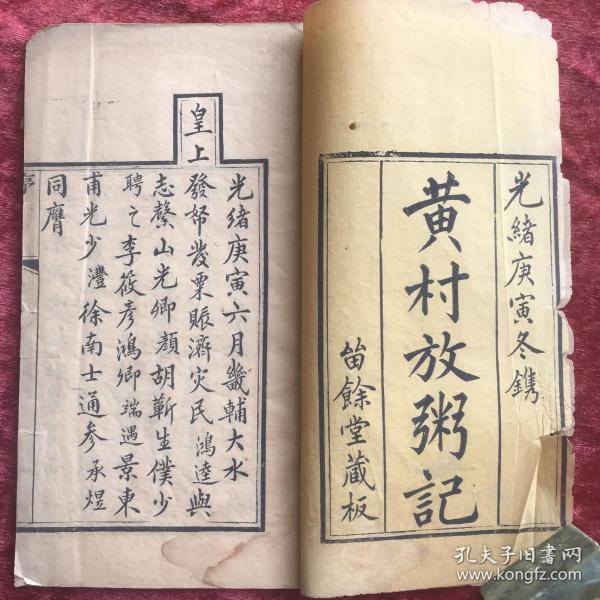 光緒庚寅冬鐫
黄村放粥記
畱餘堂藏板
光緒庚寅六月畿輔大水
皇上
發帑發粟賑濟灾民鴻逵與
志藜山光卿顏胡蘄生僕少
聘之李筱彥鴻卿端遇景東
甫光少灃徐南士通參承煜
同膺
序
孔夫子旧書网
www.kongfz.com